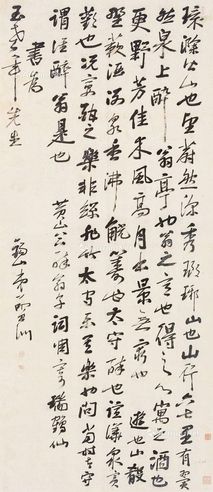 環滁皆山也望蔚然深秀瑯琊山也山行六七里有翼
然泉上醉翁亭也翁之樂也得之心寓之酒也
更野芳佳木風高日出景無窮也遊也山殽
野蔌酒洌泉香沸觥籌也太守醉也諠譁衆賓
歡也況宴酣之樂非絲非竹太守樂其樂也問當時太守
謂誰醉翁是也
黃山谷醉翁詞調寄瑞鶴仙
書爲
先生